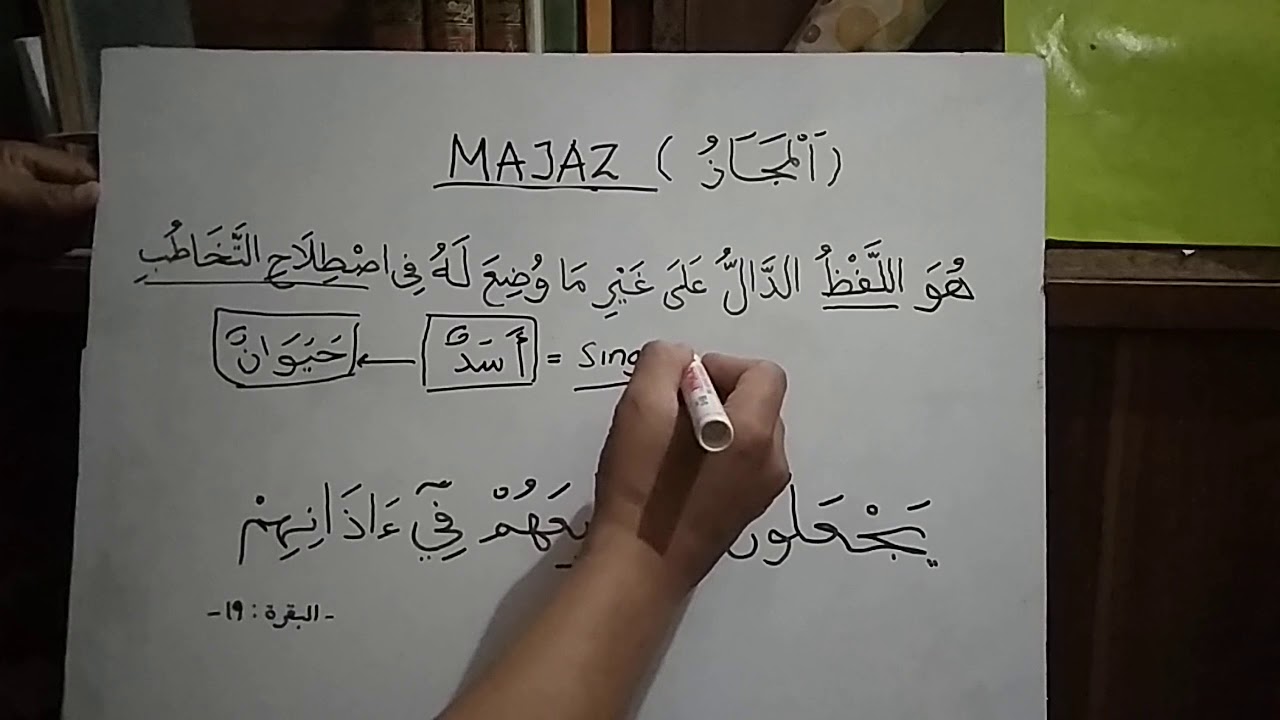 MAJAZ ( اَلْمَجَازُ )
هُوَ اللَّفْظُ الدَّالُّ عَلَى غَيْرِ مَا وُضِعَ لَهُ فِى اصْطِلَاحِ التَّخَاطُبِ
حَيَوَانٌ ← أَسَدٌ =
يَجْعَلُونَ فِيٓ ءَاذَانِهِمْ
- البقرة : ١٩ -